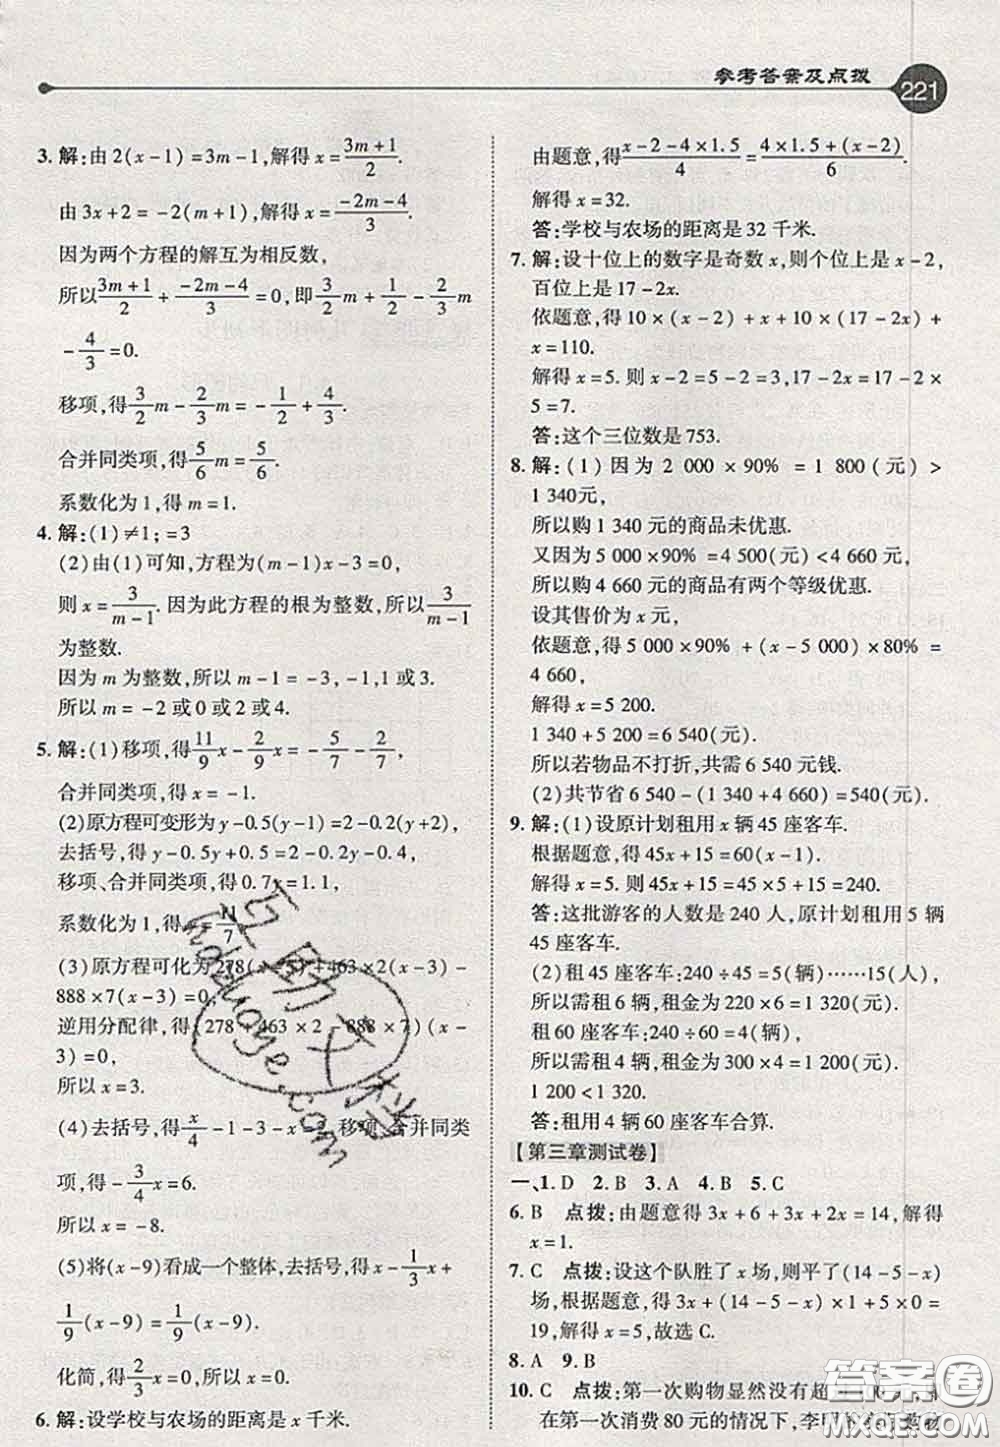 参考答案及点拨
221
3. 解:由 2(x-1)=3m-1,解得 x=\frac{3m+1}{2}.
由 3x+2=-2(m+1),解得 x=\frac{-2m-4}{3}.
因为两个方程的解互为相反数,
所以\frac{3m+1}{2}+\frac{-2m-4}{3}=0,即\frac{3}{2}m+\frac{1}{2}-\frac{2}{3}m
-\frac{4}{3}=0.
移项,得\frac{3}{2}m-\frac{2}{3}m=-\frac{1}{2}+\frac{4}{3}.
合并同类项,得\frac{5}{6}m=\frac{5}{6}.
系数化为 1,得 m=1.
4. 解:(1)≠1;=3
(2)由(1)可知,方程为(m-1)x-3=0,
则 x=\frac{3}{m-1}. 因为此方程的根为整数,所以\frac{3}{m-1}
为整数.
因为 m 为整数,所以 m-1=-3,-1,1 或 3.
所以 m=-2 或 0 或 2 或 4.
5. 解:(1)移项,得\frac{11}{9}x-\frac{2}{9}x=-\frac{5}{7}-\frac{2}{7},
合并同类项,得 x=-1.
(2)原方程可变形为 y-0.5(y-1)=2-0.2(y+2),
去括号,得 y-0.5y+0.5=2-0.2y-0.4,
移项、合并同类项,得 0.7y=1.1,
系数化为 1,得 y=\frac{11}{7}
(3)原方程可化为 278(x-3)+463×2(x-3)-
888×7(x-3)=0,
逆用分配律,得(278+463×2-888×7)(x-
3)=0,
所以 x=3.
(4)去括号,得\frac{x}{4}-1-3-x=2,移项、合并同类
项,得-\frac{3}{4}x=6.
所以 x=-8.
(5)将(x-9)看成一个整体,去括号,得 x-\frac{1}{3}x+
\frac{1}{9}(x-9)=\frac{1}{9}(x-9).
化简,得\frac{2}{3}x=0,所以 x=0.
6. 解:设学校与农场的距离是 x 千米.
由题意,得\frac{x-2-4×1.5}{4}=\frac{4×1.5+(x-2)}{6}.
解得 x=32.
答:学校与农场的距离是 32 千米.
7. 解:设十位上的数字是奇数 x,则个位上是 x-2,
百位上是 17-2x.
依题意,得 10×(x-2)+10x+(17-2x)+
x=110.
解得 x=5. 则 x-2=5-2=3,17-2x=17-2×
5=7.
答:这个三位数是 753.
8. 解:(1)因为 2 000×90%=1 800(元)>
1 340元,
所以购 1 340 元的商品未优惠.
又因为 5 000×90%=4 500(元)<4 660 元,
所以购 4 660 元的商品有两个等级优惠.
设其售价为 x 元,
依题意,得 5 000×90%+(x-5 000)×80%=
4 660,
解得 x=5 200.
1 340+5 200=6 540(元).
所以若物品不打折,需要 6 540 元钱.
(2)共节省 6 540-(1 340+4 660)=540(元).
9. 解:(1)设原计划租用 x 辆 45 座客车.
根据题意,得 45x+15=60(x-1).
解得 x=5. 则 45x+15=45×5+15=240.
答:这批游客的人数是 240 人,原计划租用 5 辆
45 座客车.
(2)租 45 座客车:240÷45=5(辆)……15(人),
所以需租 6 辆,租金为 220×6=1 320(元).
租 60 座客车:240÷60=4(辆),
所以需租 4 辆,租金为 300×4=1 200(元).
1 200<1 320.
答:租用 4 辆 60 座客车合算.
【第三章测试卷】
一、1. D 2. B 3. A 4. B 5. C
6. B 点拨:由题意得 3x+6+3x+2x=14,解得
x=1.
7. C 点拨:设这个队胜了 x 场,则平了(14-5-x)
场,根据题意,得 3x+(14-5-x)×1+5×0=
19,解得 x=5,故选 C.
8. A 9. B
10. C 点拨:第一次购物显然没有超
在第一次消费 80 元的情况下,李明
互助文档
hdzuoye.com
答案圈
MXQE.COM